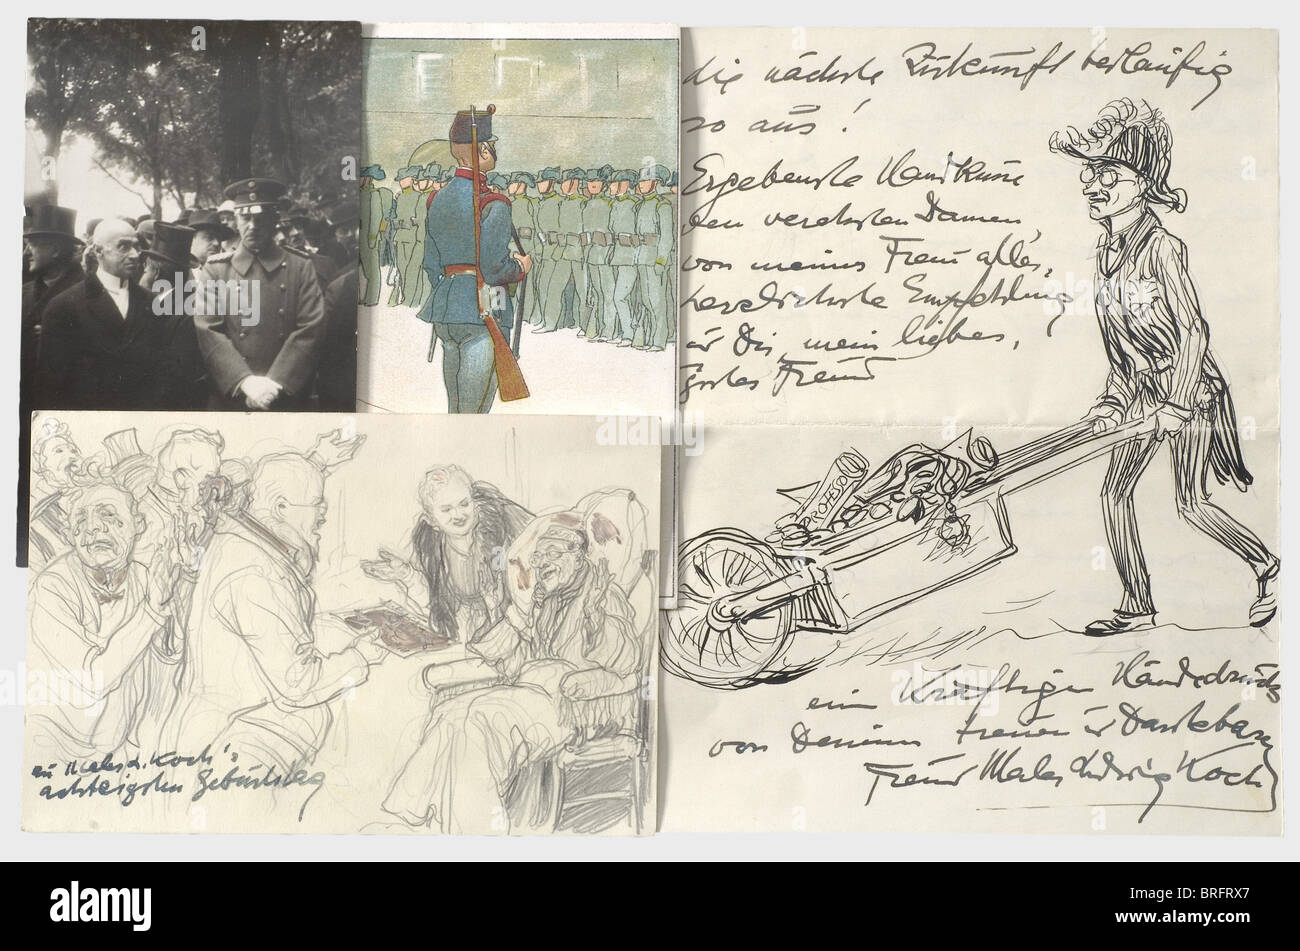 die nächste Zukunft vorläufig
so aus!
Ergebenste Handküsse
den verehrten Damen,
von meiner Frau alles,
herzlichste Empfehlung
Dir, mein liebes,
gutes Freund
PROFESSOR
ein kräftigen Händedruck
von Deinem treuen u Dankbaren
Freund Maler Ludwig Koch
zu Maler L. Koch's
achtzigsten Geburtstag
a alamy stock photo
alamy
Image ID: BRFRX7
www.alamy.com